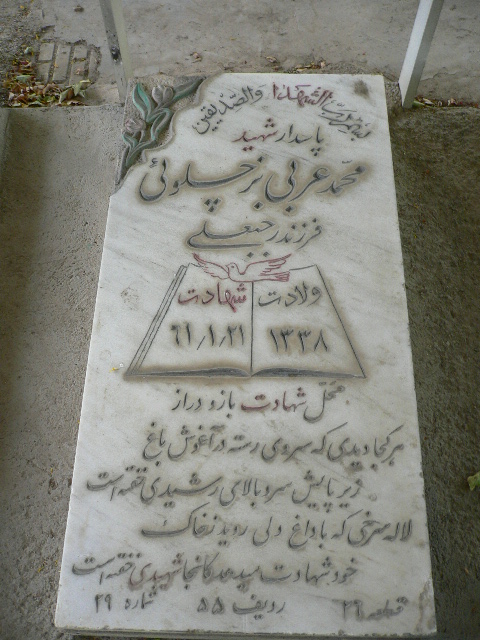 بسم رب الشهداء والصدیقین
پاسدار شهید
محمد عربی بزچلوئی
فرزند رجبعلی
ولادت شهادت
۱۳۳۸ ۶۱/۱/۲۱
محل شهادت بازو دراز
هر کجا دیدی که سروی رسته در آغوش باغ
زیر پایش سرو بالای رشیدی خفته است
لاله سرخی که با داغ دلی روید ز خاک
خود شهادت میدهد کانجا شهیدی خفته است
قطعه ۲۶ ردیف ۵۵ شماره ۲۹